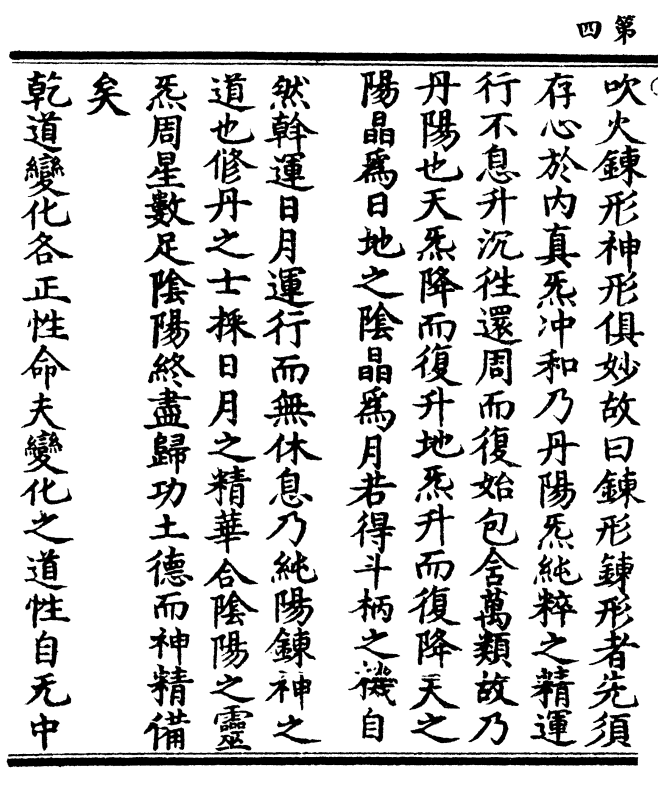 第四
吹火鍊形神形俱妙故曰鍊形鍊形者先須
存心於内真炁冲和乃丹陽炁純粹之精運
行不息升沉徃還周而復始包含萬類故乃
丹陽也天炁降而復升地炁升而復降天之
陽晶爲日地之陰晶爲月若得斗柄之機自
然斡運日月運行而無休息乃純陽鍊神之
道也修丹之士採日月之精華合陰陽之靈
炁周星數足陰陽終盡歸功土德而神精備
矣
乾道變化各正性命夫變化之道性自无中